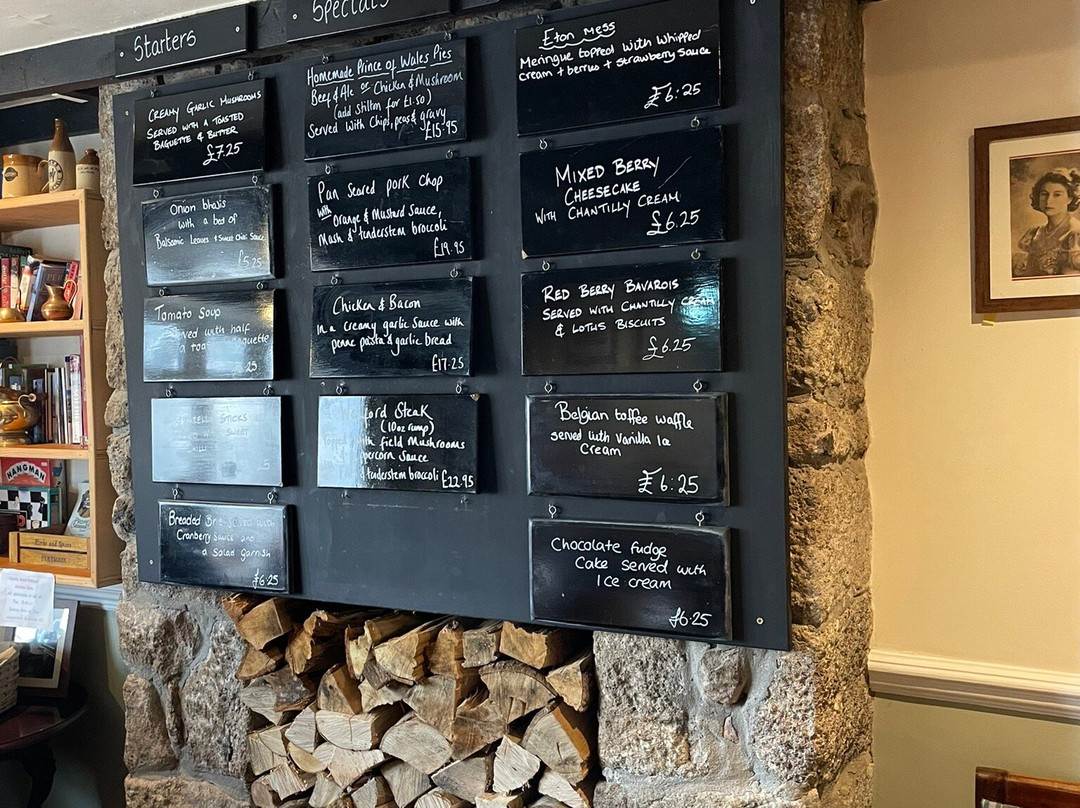 Starters
Specials
CREAMY GARLIC MUSHROOMS
SERVED WITH A TOASTED
BAGUETTE & BUTTER
£7.25
Onion bhajis
with a bed of
Balsamic Leaves & Sweet Chilli Sauce
£5.25
Tomato Soup
served with half
a toasted baguette
25
STICKS
SWEET
Breaded Brie served with
Cranberry Sauce and
a Salad Garnish
£6.25
Homemade Prince of Wales Pies
Beef & Ale or Chicken & Mushroom
(add stilton for £1.50)
Served with Chips, peas & gravy
£15.95
Pan Seared pork chop
with Orange & Mustard Sauce,
Mash & tenderstem broccoli
£19.95
Chicken & Bacon
in a creamy garlic sauce with
penne pasta & garlic bread
£17.25
Steak
(10oz rump)
topped with field Mushrooms
peppercorn Sauce
& tenderstem broccoli £22.95
Eton Mess
Meringue topped with whipped
cream + berries + strawberry sauce
£6:25
MIXED BERRY
CHEESECAKE
WITH CHANTILLY CREAM
£6.25
RED BERRY BAVAROIS
SERVED WITH CHANTILLY CREAM
& LOTUS BISCUITS
£6.25
Belgian toffee waffle
served with Vanilla Ice
Cream
£6:25
Chocolate fudge
Cake served with
Ice cream
£6.25
HANGMAN